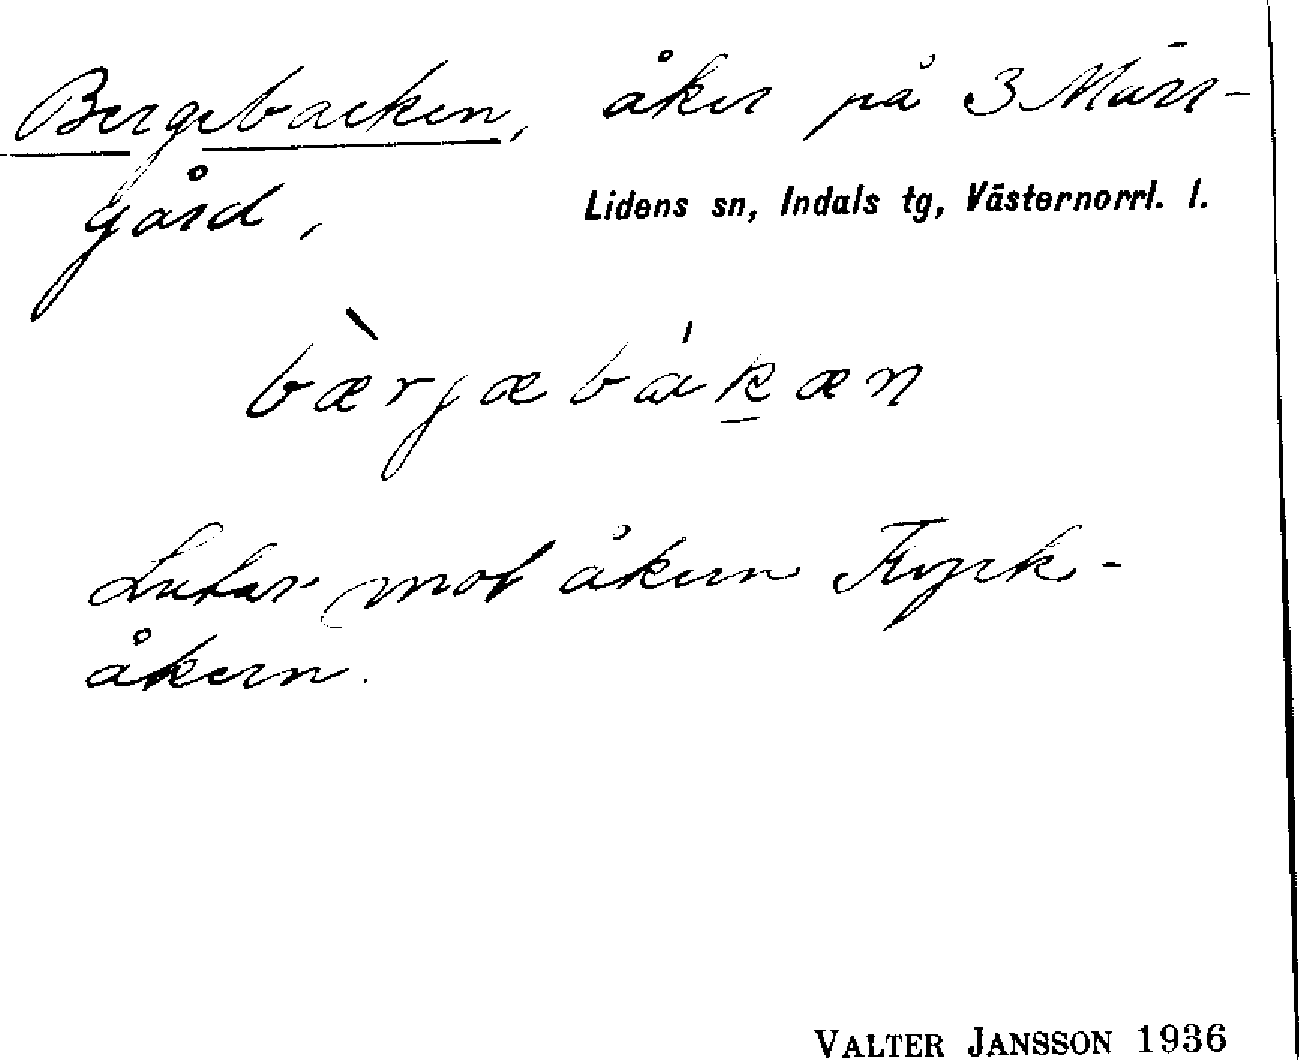 Bergebacken, åker på 3 Mårs-
gård,
Lidens sn, Indals tg, Västernorrl. l.
bærjæbákæn
Lutar mot åkern Kyrk-
åkern.
VALTER JANSSON 1936